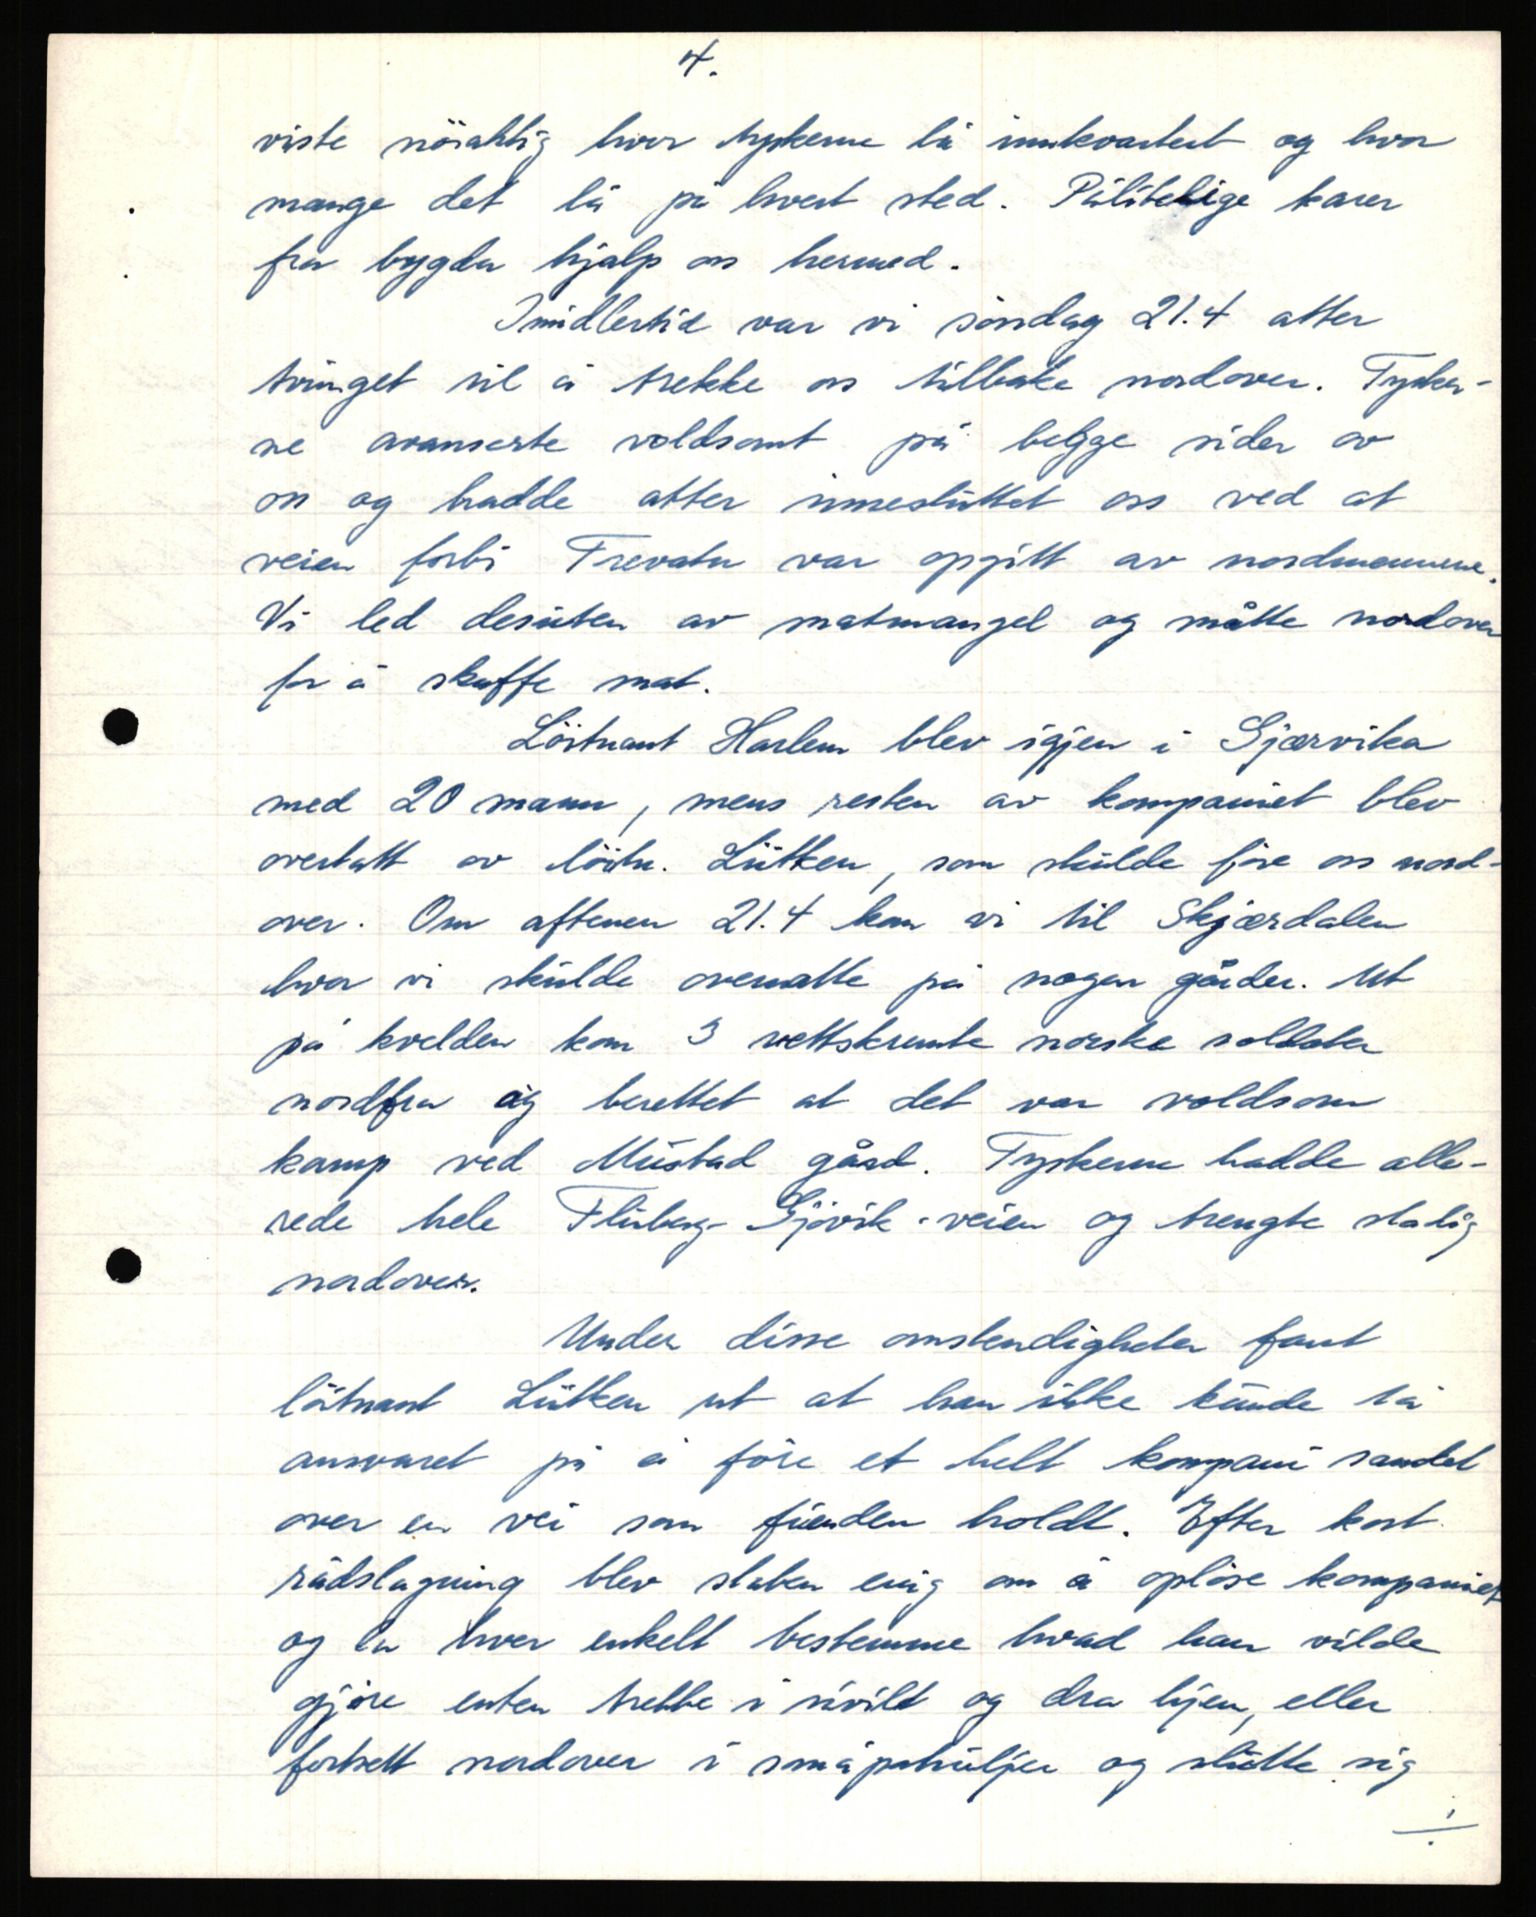 4.
viste nöiaktig hvor tyskerne lå innkvartert og hvor
mange det lå på hvert sted. Pålitelige karer
fra bygda hjalp oss hermed.
Imidlertid var vi söndag 21.4 atter
tvunget til å trekke oss tilbake nordover. Tysker-
ne avanserte voldsomt på begge sider av
oss og hadde atter inneslüttet oss ved at
veien forbi Trevatn var opgitt av nordmennene.
Vi led desuten av matmangel og måtte nordover
for å skaffe mat.
Löitnant Harlem blev igjen i Gjærvika
med 20 mann, mens resten av kompaniet blev
overtatt av löitn. Lütken, som skulde före oss nord-
over. Om aftenen 21.4 kom vi til Skjærdalen
hvor vi skulde overnatte på nogen gårder. Ut
på kvelden kom 3 vettskremte norske soldater
nordfra og berettet at det var voldsom
kamp ved Mustad gård. Tyskerne hadde alle-
rede hele Fluberg-Gjövik-veien og trengte stadig
nordover.
Under disse omstendigheter fant
löitnant Lütken ut at han ikke kunde ta
ansvaret på å före et helt kompani samlet
over en vei som fienden holdt. Efter kort
rådslagning blev staben enig om å oplöse kompaniet
og la hver enkelt bestemme hvad han vilde
gjöre enten trekke i sivilt og dra hjem, eller
fortsett nordover i småpatruljer og slutte sig
./.